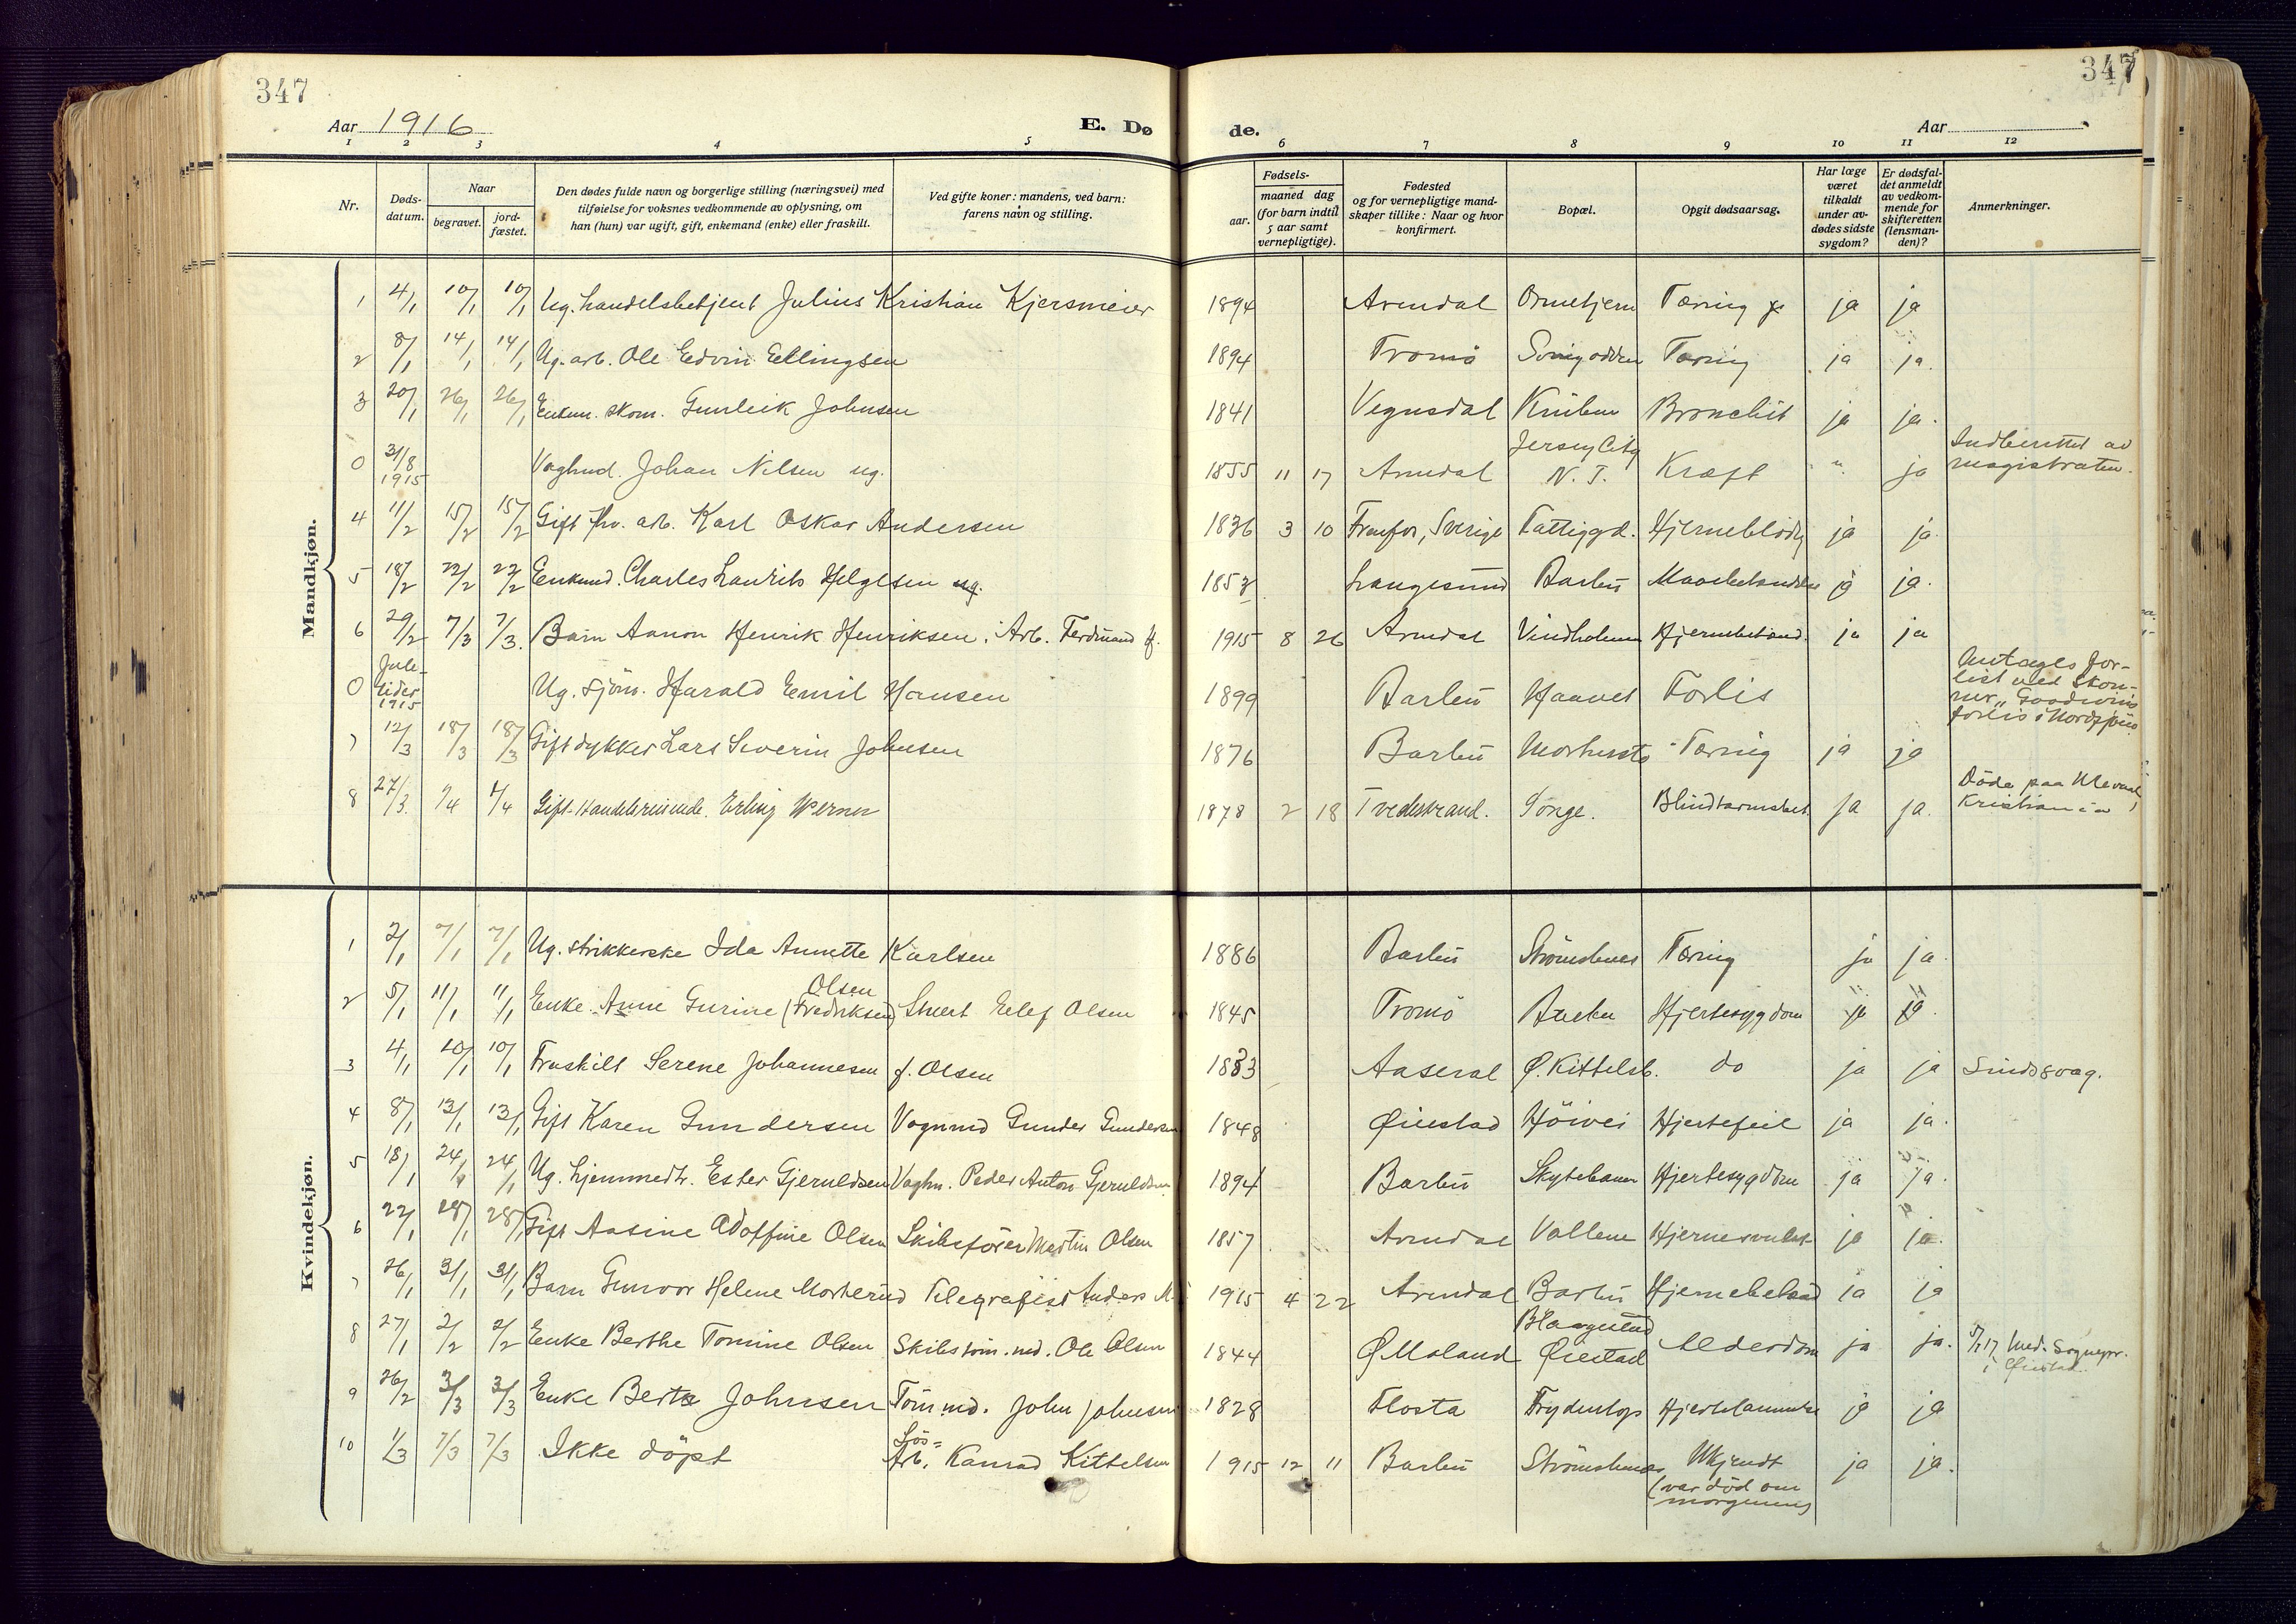 347
347
Aar 1916
E. Dø
de.
Aar
1 2 3 4 5 6 7 8 9 10 11 12
Nr.
Døds-
datum.
Naar
begravet.
jord-
fæstet.
Den dødes fulde navn og borgerlige stilling (næringsvei) med
tilføielse for voksnes vedkommende av oplysning, om
han (hun) var ugift, gift, enkemand (enke) eller fraskilt.
Ved gifte koner: mandens, ved barn:
farens navn og stilling.
Fødsels-
aar.
maaned dag
(for barn indtil
5 aar samt
vernepligtige).
Fødested
og for vernepligtige mand-
skaper tillike: Naar og hvor
konfirmert.
Bopæl.
Opgit dødsaarsag.
Har læge
været
tilkaldt
under av-
dødes sidste
sygdom?
Er dødsfal-
det anmeldt
av vedkom-
mende for
skifteretten
(lensman-
den)?
Anmerkninger.
Mandkjøn.
1 4/1 10/1 10/1 Ug. handelsbetjent Julius Kristian Kjersmeier 1894 Arendal Tæring ja ja
2 8/1 14/1 14/1 Ug. arb. Ole Edvin Ellingsen 1894 Tromö Tæring ja ja.
3 20/1 26/1 26/1 Enkem. skom. Gunleik Johnsen 1841 Vegusdal Bronchit ja ja.
0 31/8 1915 Vaghmd. Johan Nilsen ug. 1855 11 17 Arendal Jersey City N. J. Kræft " ja Indberettet av magistraten.
4 11/2 15/2 15/2 Gift fhv. arb. Karl Oskar Andersen 1836 3 10 Sverige Fattiggd. Hjerneblödn ja ja
5 18/2 22/2 22/2 Enkemd. Charles Laurits Helgesen ug. 1852 Langesund Barbu ja ja.
6 29/2 7/3 7/3. Barn Aanon Henrik Henriksen. Arb. Ferdinand H. 1915 8 26 Arendal Vindholmen Hjernebetænd. ja ja
0 Jule-tider 1915 Ug. sjöm. Harald Emil Hansen 1899 Barbu Haavet Forlis Antages for-list ved skon-nert "Goodwins forlis i Nordsjöen
7 12/3 18/3 18/3 Gift dykker Lars Severin Johnsen 1876 Barbu Tæring ja ja
8 27/3. 1/4 1/4 Gift. Handelsreisende. Erling Werner 1878 2 18 Tvedestrand. Songe. Blindtarmsbet. ja ja. Döde paa Ulevaal, Kristiania
Kvindekjøn.
1 2/1 7/1 7/1 Ug. strikkerske Ida Annette Karlsen 1886 Barbu Strömsbunes Tæring ja ja.
2 5/1 11/1 11/1 Enke. Anne Gurine Olsen (Fredriksen) Eelef Olsen 1845 Tromö Barbu Hjertesygdom ja ja.
3 4/1 10/1 10/1 Fraskilt Serene Johannesen f. Olsen 1833 Aaseral Ö. Kittelsb. do ja ja Sindssvag.
4 8/1 13/1 13/1 Gift Karen Gundersen Vognmd Gunder Gundersen 1848 Öiestad Höivei Hjertefeil ja ja.
5 18/1 24/1 24/1 Ug. hjemmedt. Ester Gjeruldsen Vaghm. Peder Anton Gjeruldsen 1894 Barbu Skytebanen Hjertesygdom ja ja.
6 22/1 28/1 28/1 Gift Aasine Adolfine Olsen Skibsförer Martin Olsen 1857 Arendal Vollene ja ja.
7 26/1 31/1 31/1 Barn Gunvor Helene Morterud Telegrafist Anders M. 1915 4 22 Arendal Barbu Hjernebetænd ja ja
8 27/1 2/2 2/2 Enke Berthe Tomine Olsen Skibstöm.md. Ole Olsen 1844 Ö Moland Blaagestad Öiestad Alderdom ja ja. Med. Sognepr. i Öiestad.
9 26/2 3/3 3/3 Enke Berte Johnsen Töm md. John Johnsen 1828 Flosta ja ja
10 1/3 7/3 7/3 Ikke döpt Lös-Arb. Konrad Kittelsen 1915 12 11 Barbu Strömsbunes Ukjendt (var död om morgenen) ja ja.